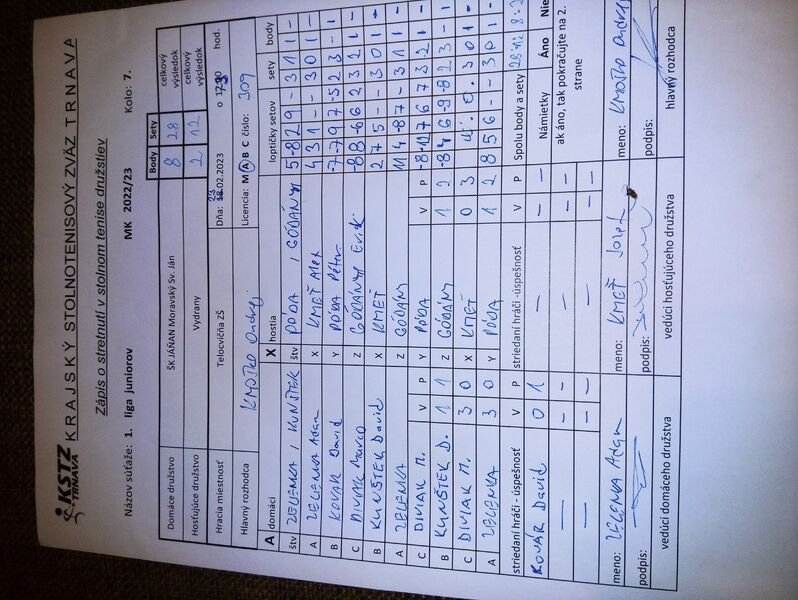 KSTZ TRNAVA
KRAJSKÝ STOLNOTENISOVÝ ZVÄZ TRNAVA
Zápis o stretnutí v stolnom tenise družstiev
Názov súťaže: 1. liga juniorov MK 2022/23 Kolo: 7.
Body Sety
Domáce družstvo ŠK JÁŇAN Moravský Sv. Ján 8 28 celkový výsledok
Hosťujúce družstvo Vydrany 2 12 celkový výsledok
Hracia miestnosť Telocvičňa ZŠ Dňa: 23.02.2023 o hod.
Hlavný rozhodca KMOŤKO Ondrej Licencia: M A B C číslo: 309
A domáci X hostia loptičky setov sety body
štv ZELENKA / KUNŠTEK štv PÓDA / GÓDÁNYI 5 -8 2 9 - 3 1 1 -
A ZELENKA Adam X KMEŤ Alex 4 3 1 - - 3 0 1 -
B KOVÁR David Y PÓDA Péter -7 -7 9 7 -5 2 3 - 1
C DIVIAK Marco Z GÓDÁNYI Erik -8 8 -6 6 2 3 2 1 -
B KUNŠTEK David X KMEŤ 2 7 5 - - 3 0 1 -
A ZELENKA Z GÓDÁNYI 11 4 -8 7 - 3 1 1 -
C DIVIAK M. V P Y PÓDA V P -8 -12 7 6 7 3 2 1 -
B KUNŠTEK D. 1 1 Z GÓDÁNYI 1 2 -8 4 6 -9 -8 2 3 - 1
C DIVIAK M. 3 0 X KMEŤ 0 3 3 0 1 -
A ZELENKA 3 0 Y PÓDA 1 2 8 5 6 - - 3 0 1 -
striedaní hráči - úspešnosť V P striedaní hráči - úspešnosť V P Spolu body a sety 28:12 8:2
KOVÁR David 0 1 — — — Námietky Áno Nie
— — — — — — ak áno, tak pokračujte na 2. strane
— — — — — —
meno: ZELENKA Adam meno: KMEŤ Jozef meno: KMOŤKO Ondrej
podpis: podpis: podpis:
vedúci domáceho družstva vedúci hosťujúceho družstva hlavný rozhodca